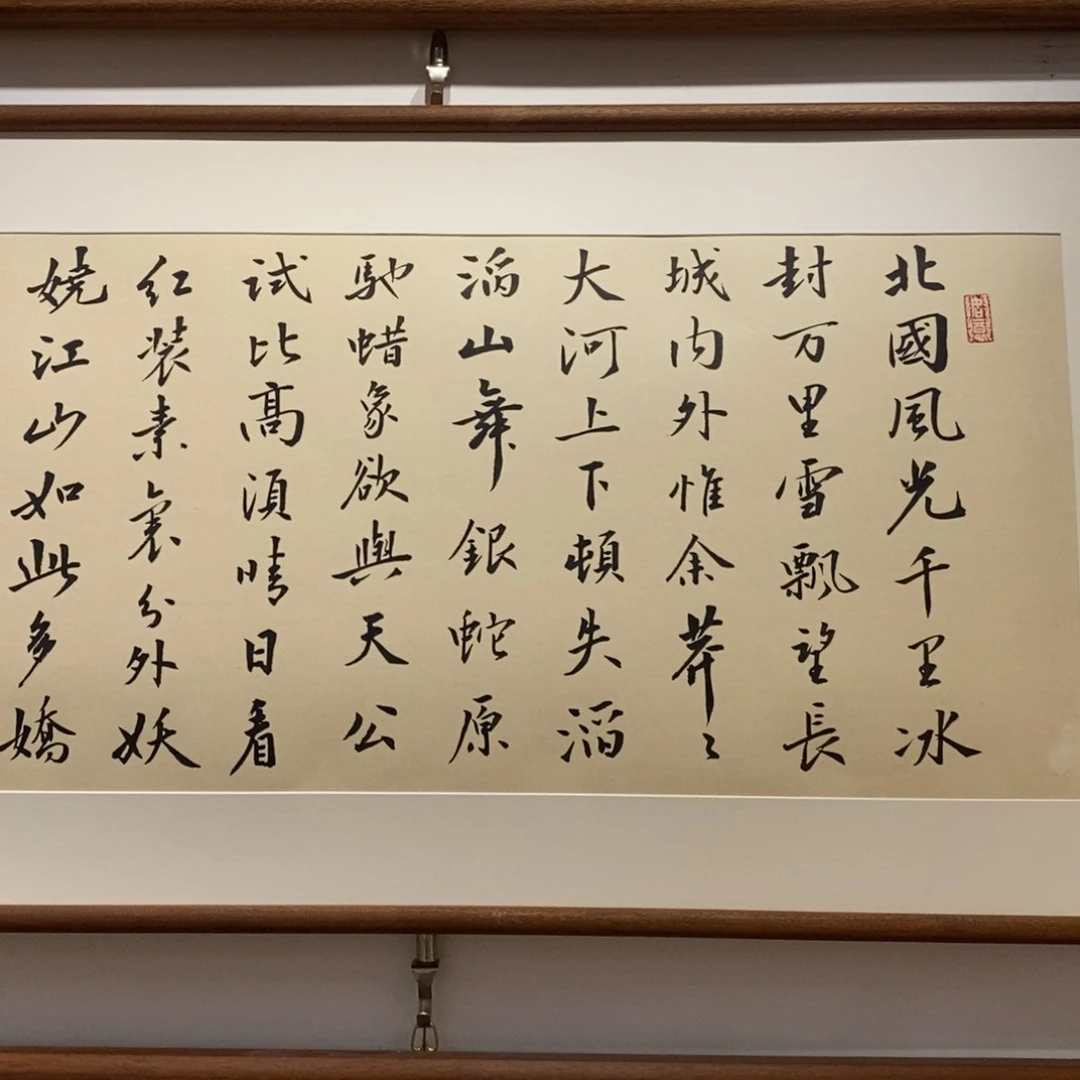 北國風光千里冰
封万里雪飄望長
城内外惟余莽〻
大河上下頓失滔
滔山舞銀蛇原
馳蜡象欲與天公
試比髙湏晴日看
红装素裹分外妖
嬈江山如此多嬌